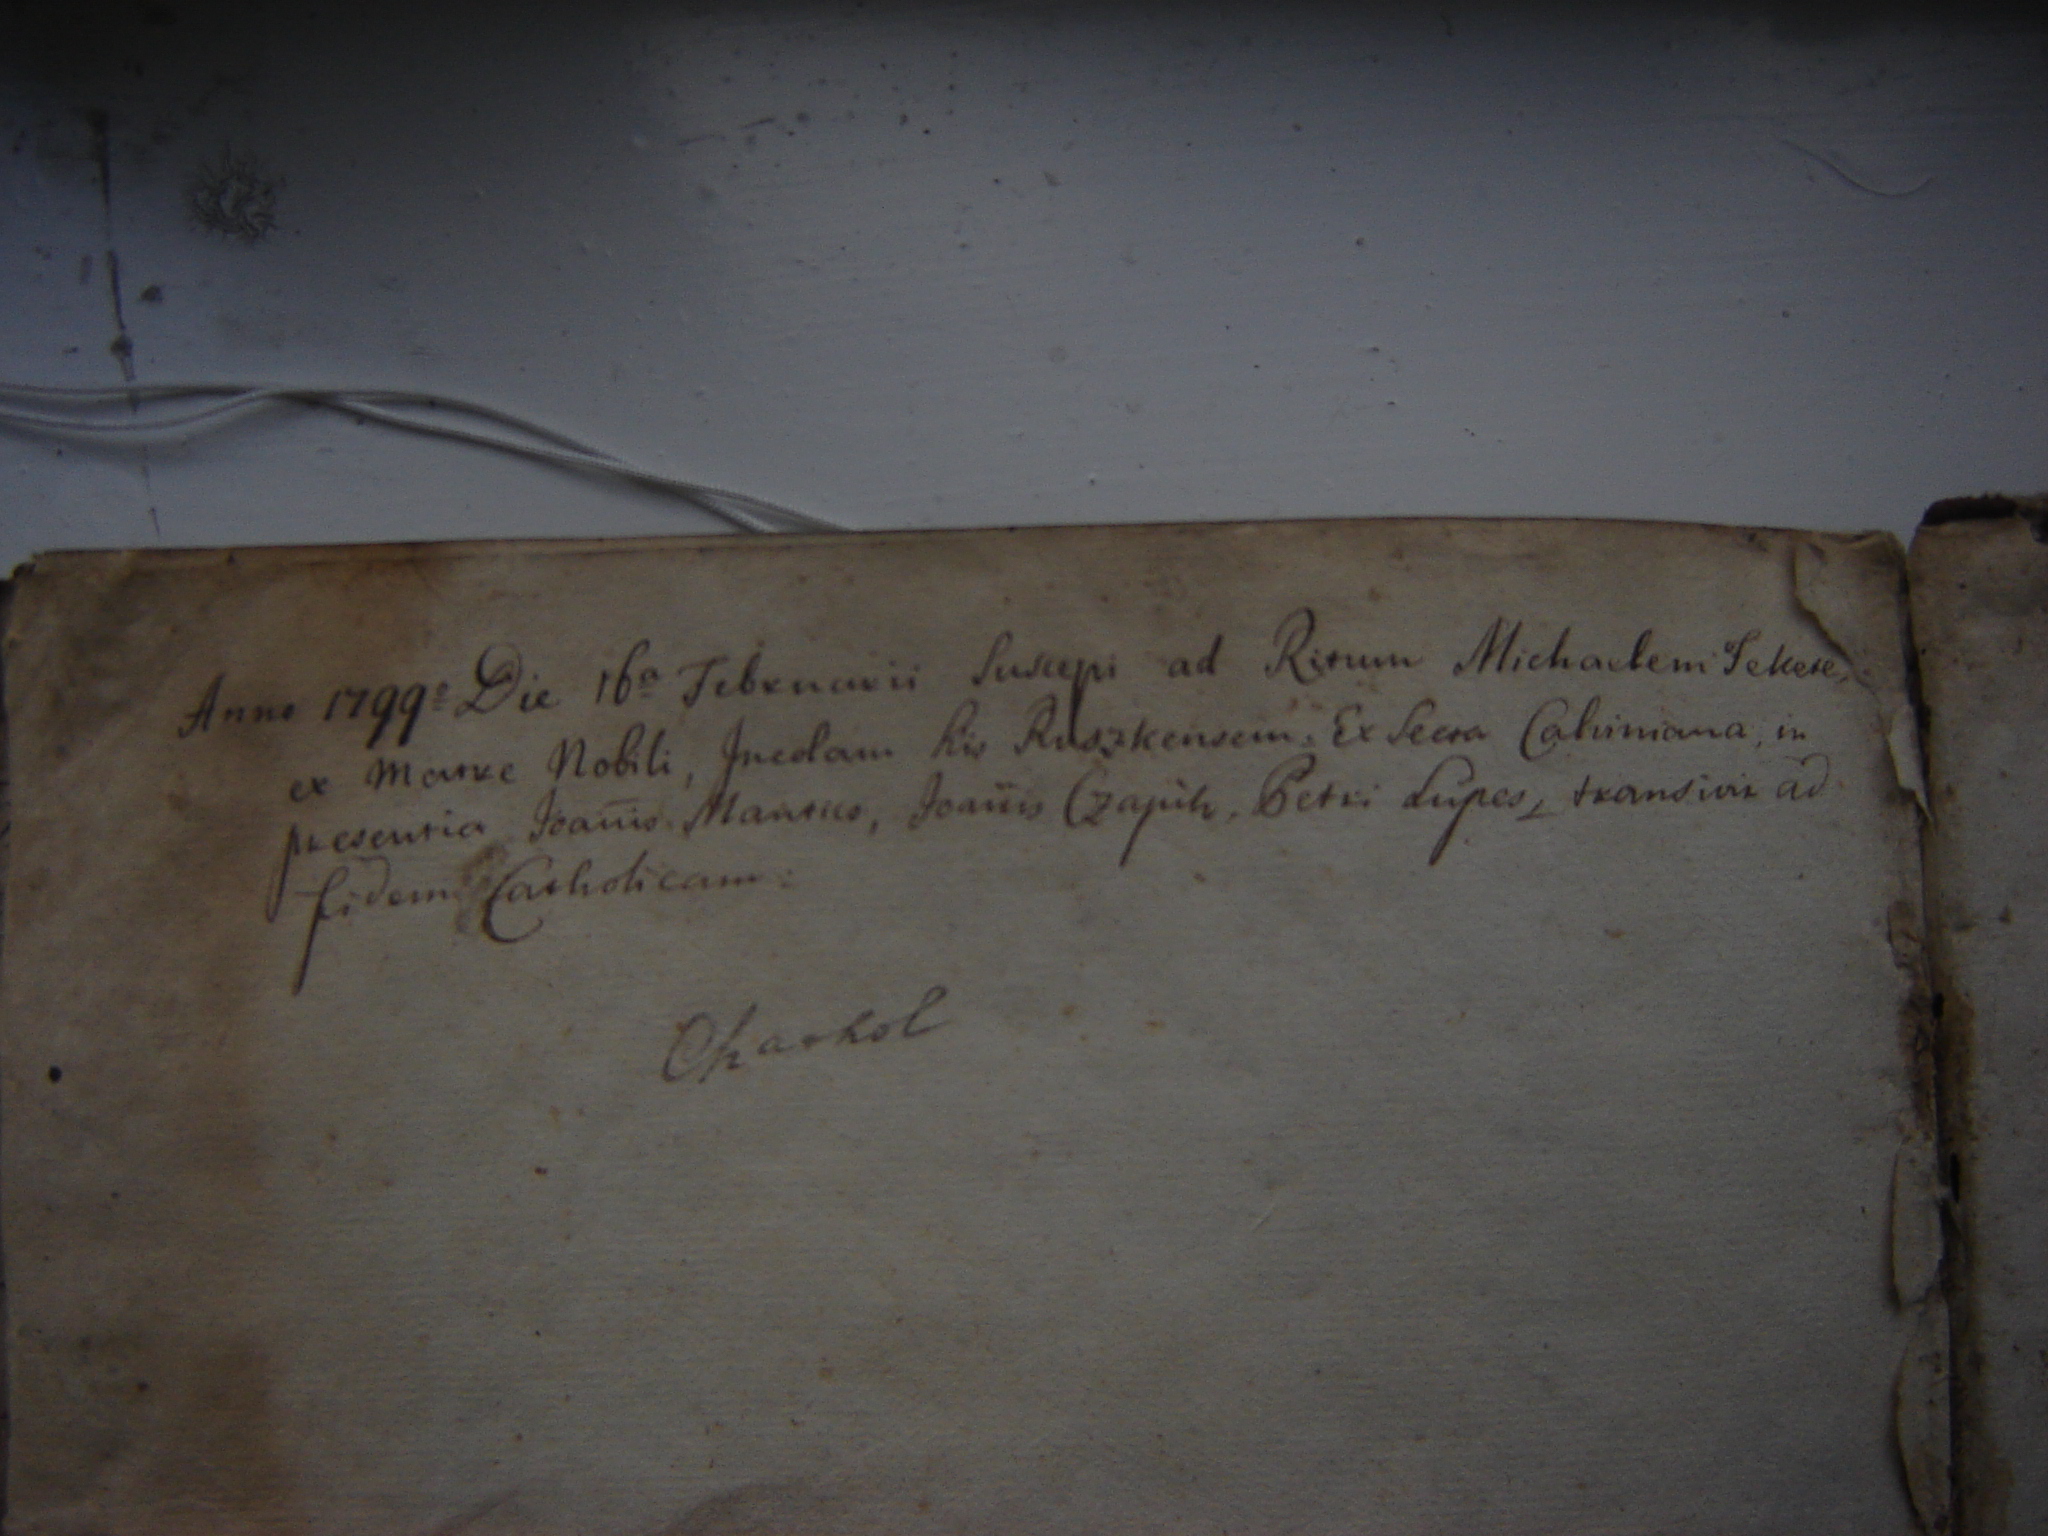 Anno 1799º Die 16ª Februarii Suscepi ad Ritum Michaelem Fekete,
ex Matre Nobili, Incolam Kis Ruszkensem. Ex Secta Calviniana, in
presentia Joañis Mantus, Joañis Czapik, Petri Lupes, transivit ad
fidem Catholicam: